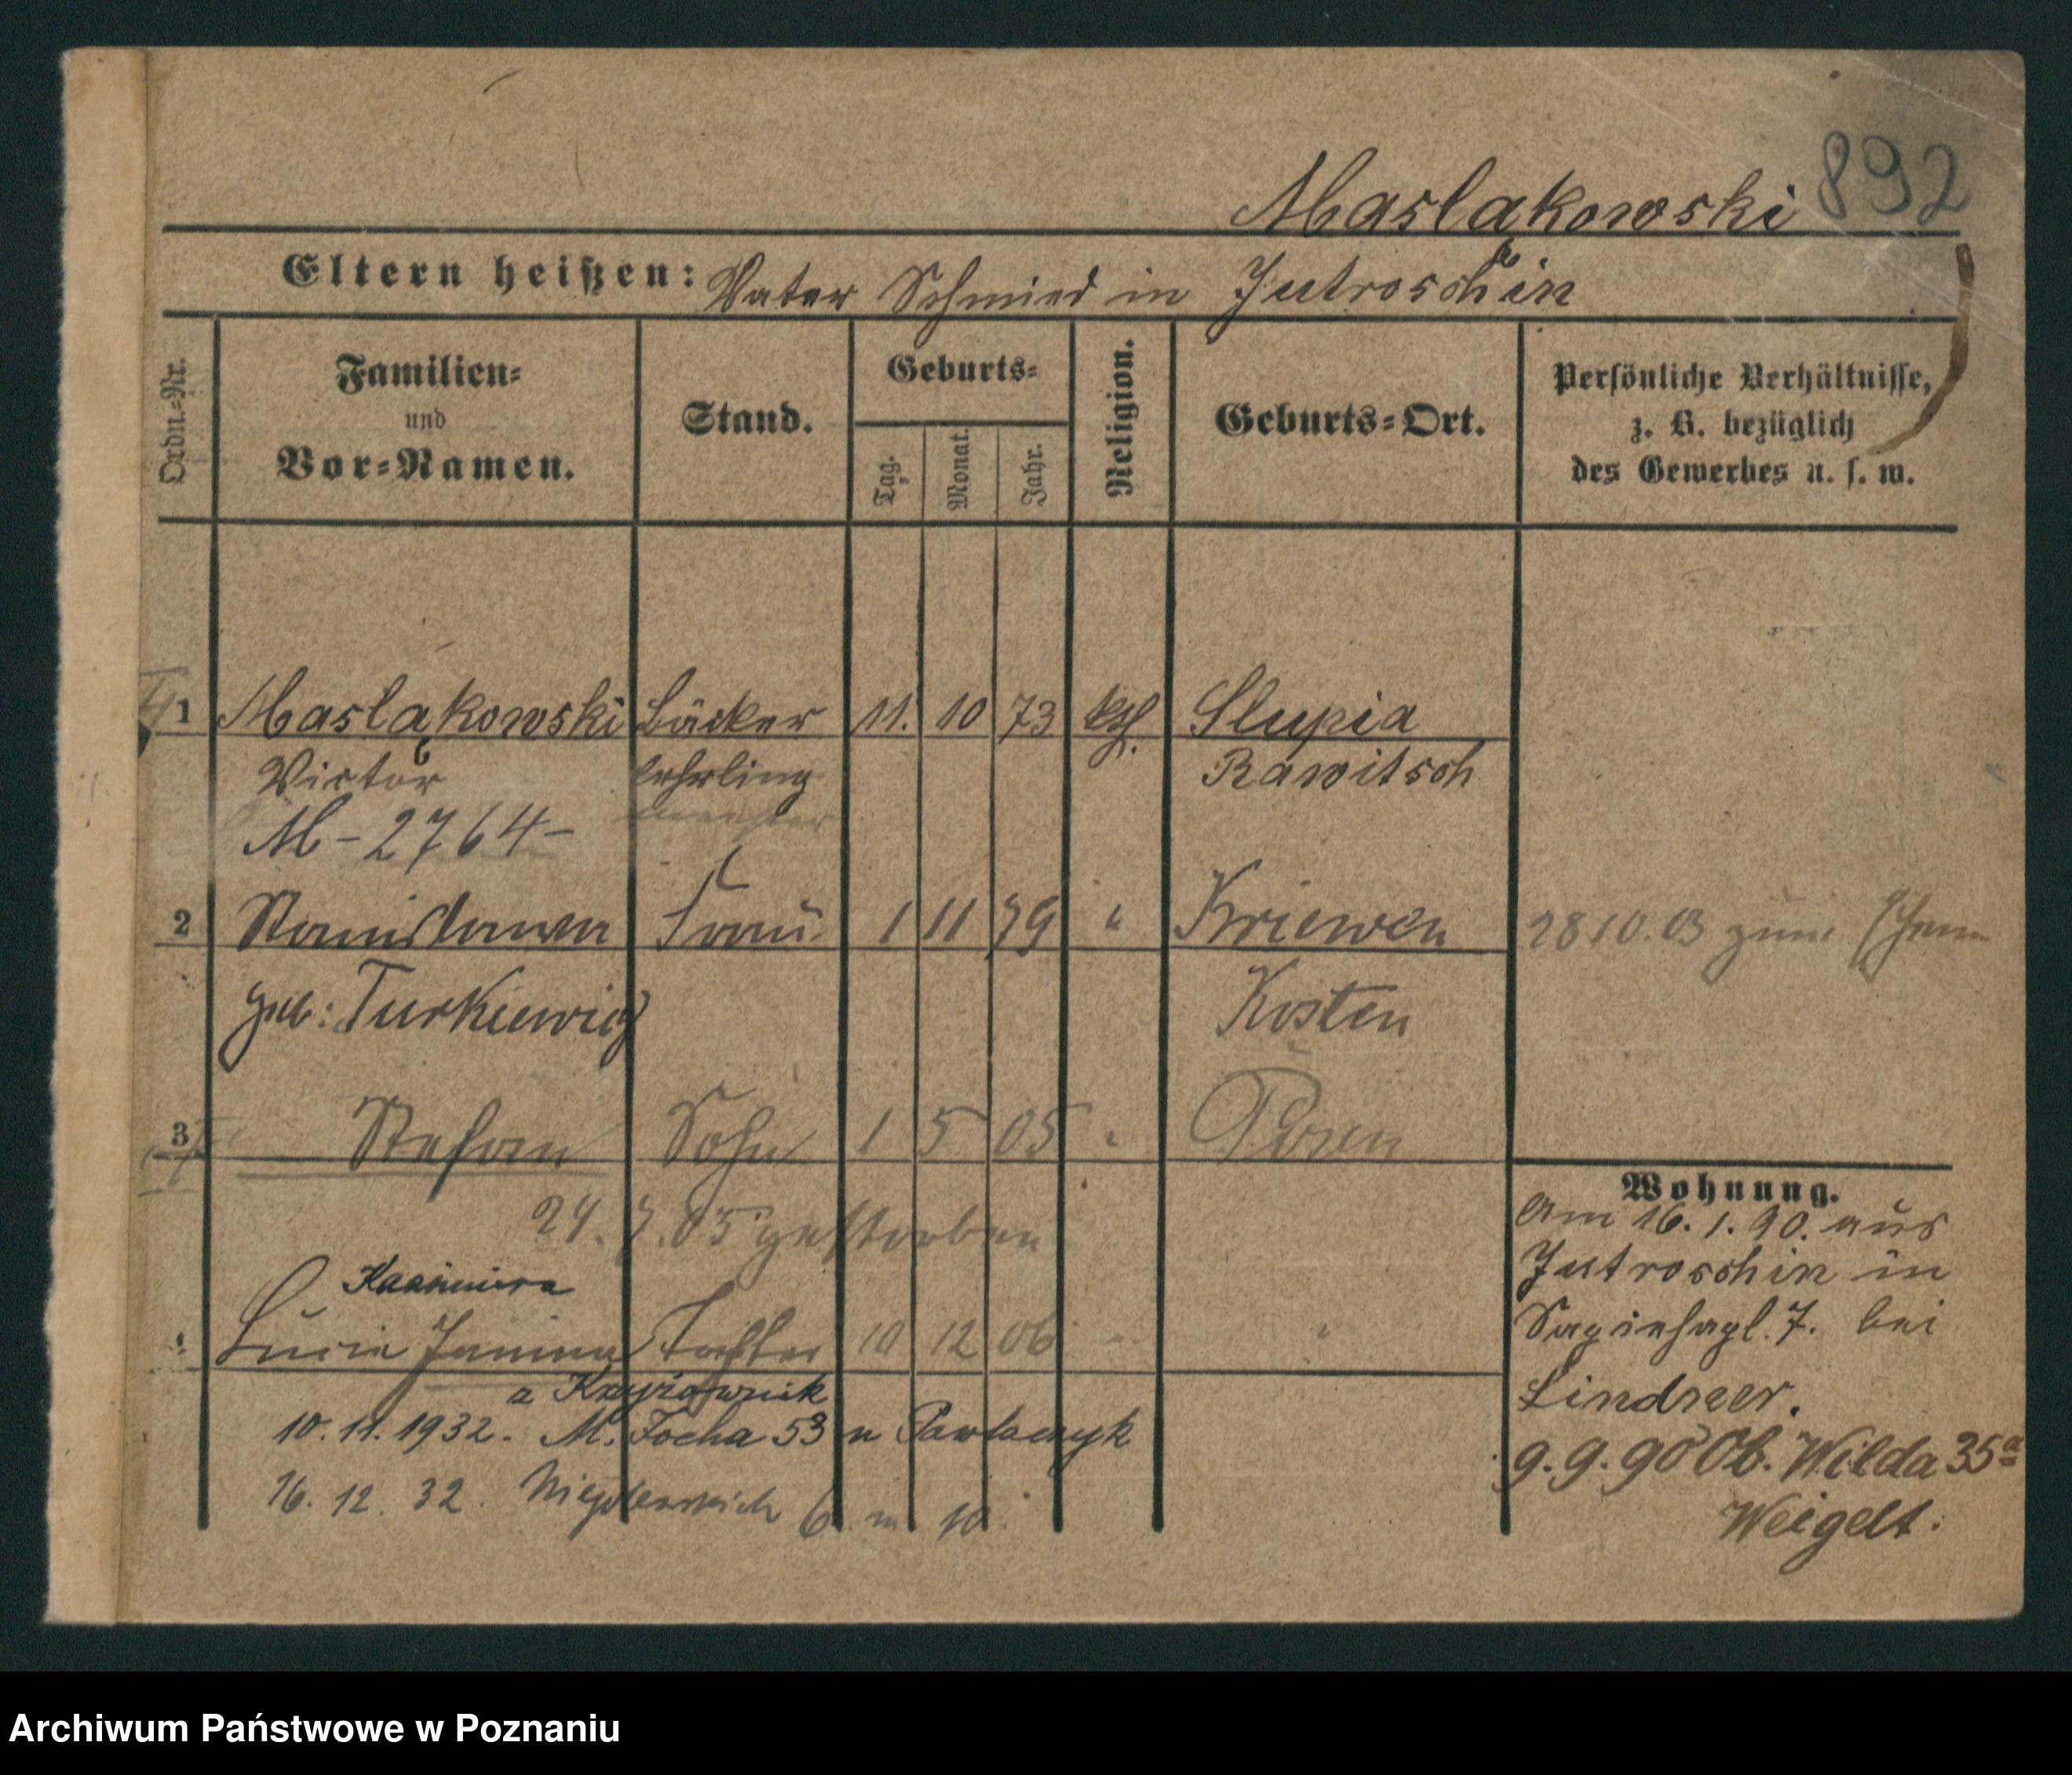 892
Maslakowski
Eltern heißen: Vater Schmied in Jutroschin
Ordn.-Nr.
Familien-
und
Vor-Namen.
Stand.
Geburts-
Tag.
Monat.
Jahr.
Religion.
Geburts-Ort.
Persönliche Verhältnisse,
z. B. bezüglich
des Gewerbes u. s. w.
1 Masląkowski Bäcker 11. 10 73 kth. Slupia
Victor lehrling Rawitsch
M - 2764 - meister
2 Stanislawa Frau 1 11 79 " Kriewen 28 10. 03 zum
geb: Turkiewicz Kosten
3 Stefan Sohn 1 5 05 " Posen
24. 7. 05 gestorben
Kazimiera
Lucie Janina Tochter 10 12 06 " "
z Krzyżownik
10. 11. 1932. M. Focha 53 u Pawlaczyk
16. 12. 32. 6 m 10.
Wohnung.
Am 16. 1. 90. aus
Jutroschin in
Sapiehapl. 7. bei
Lindner.
9. 9. 90 Ob. Wilda 35a
Weigelt.
Archiwum Państwowe w Poznaniu